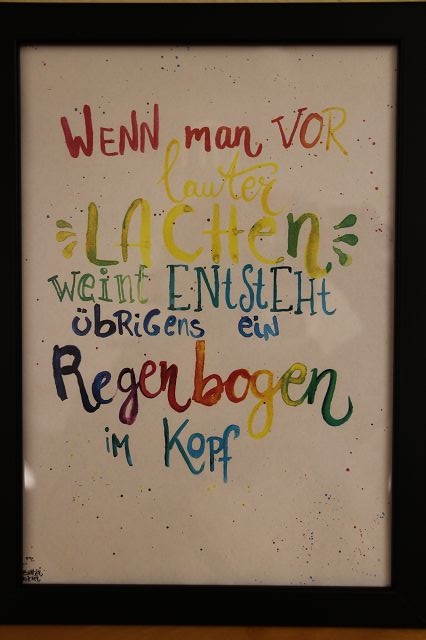 WENN man VOR
lauter
LACHEN,
weint ENtStEHt
übRiGens ein
Regenbogen
im Kopf